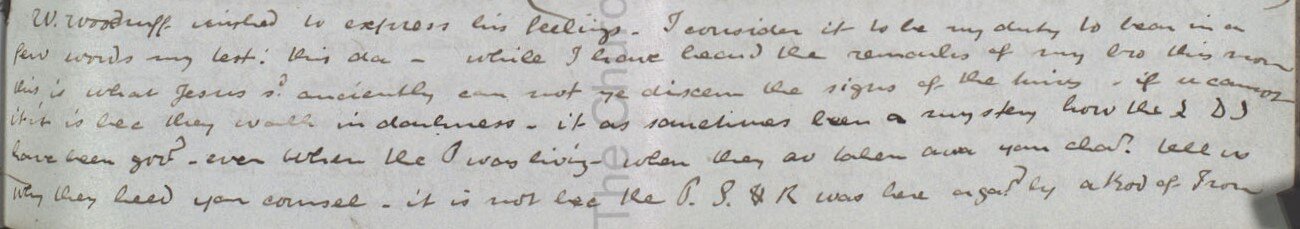 W. Woodruff wished to express his feelings - I consider it to be my duty to bear in a
few words my test: this da - while I have heard the remarks of my bro this morn
this is what Jesus sd. anciently can not ye discern the signs of the times - if u cannot
it is bec they walk in darkness - it as sometimes been a mystery how the L D S
have been govd. - even when the P was living - when they av taken awa your chart. tell us
why they heed your counsel - it is not bec the P. S. & R was here orgad. by a Rod of Iron
The Chur